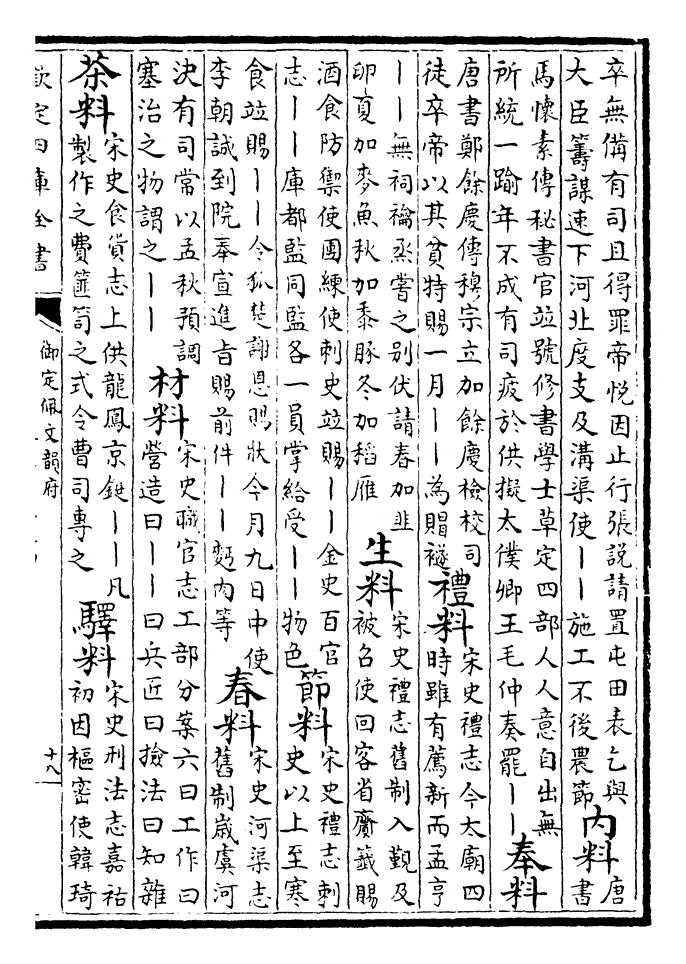 卒無備有司且得罪帝悅因止行張說請置屯田表乞與
大臣籌謀速下河北度支及溝渠使——施工不後農節
内料
唐
書
馬懷素傳秘書官竝號修書學士草定四部人人意自出無
所統一踰年不成有司疲於供擬太僕卿王毛仲奏罷——
奉料
唐書鄭餘慶傳穆宗立加餘慶檢校司
徒卒帝以其貧特賜一月——為賵襚
禮料
宋史禮志今太廟四
時雖有薦新而孟亨
——無祠禴烝嘗之别伏請春加韭
卵夏加麥魚秋加黍豚冬加稻雁
生料
宋史禮志舊制入覲及
被召使回客省賫籖賜
酒食防禦使團練使刺史竝賜——金史百官
志——庫都監同監各一員掌給受——物色
節料
宋史禮志刺
史以上至寒
食竝賜——令狐楚謝恩賜狀今月九日中使
李朝誠到院奉宣進旨賜前件——麪肉等
春料
宋史河渠志
舊制歲虞河
決有司常以孟秋預調
塞治之物謂之——
材料
宋史職官志工部分案六曰工作曰
營造曰——曰兵匠曰撿法曰知雜
茶料
宋史食貨志上供龍鳳京鋌——凡
製作之費篚笥之式令曹司專之
驛料
宋史刑法志嘉祐
初因樞密使韓琦
欽定四庫全書
御定佩文韻府
十八